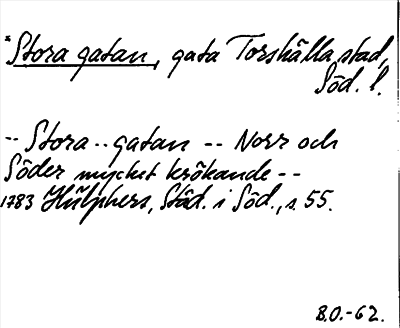 *Stora gatan, gata Torshälla stad,
Söd. l.
-- Stora -- gatan -- Norr och
Söder mycket krökande --
1783 Hülphers, Städ. i Söd., s. 55.
B.O.-62.